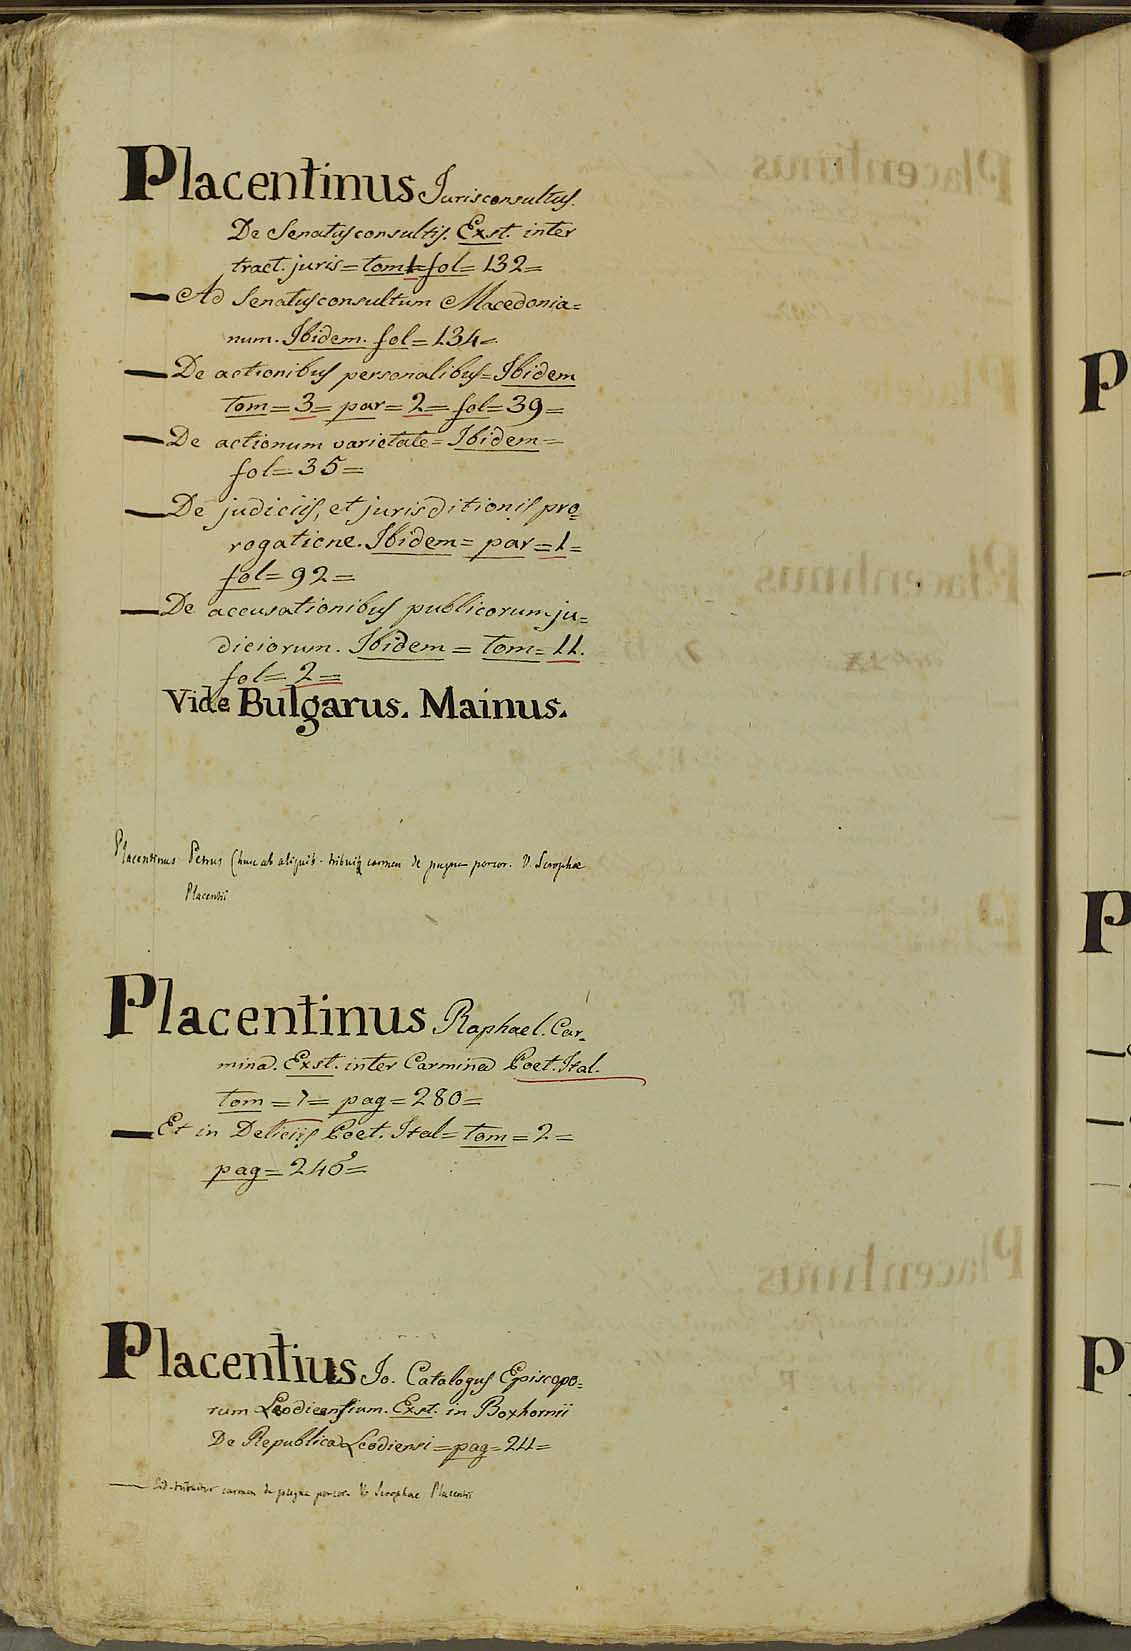 Placentinus Jurisconsultus.
De Senatusconsultis. Exst. inter
tract. juris = tom 1 = fol = 132 =
— Ad Senatusconsultum Macedonia=
num. Ibidem. fol = 134 =
— De actionibus personalibus = Ibidem
tom = 3 = par = 2 = fol = 39 =
— De actionum varietate = Ibidem =
fol = 35 =
— De judiciis, et jurisditionis pro=
rogatione. Ibidem = par = 1 =
fol = 92 =
— De accusationibus publicorum ju=
diciorum. Ibidem = tom = 11.
fol = 2 =
Vide Bulgarus. Mainus.
Placentinus Petrus (huic ab aliquib. tribuiť carmen de pugna porcor. V. Scrophae
Placentii
Placentinus Raphael. Car=
mina. Exst. inter Carmina Poet. Ital.
tom = 7 = pag = 280 =
— Et in Deliciis Poet. Ital = tom = 2 =
pag = 246 =
Placentius Jo. Catalogus Episcopo=
rum Leodiensium. Exst. in Boxhornii
De Republica Leodiensi = pag = 211 =
— tribuitur carmen de pugna porcor. V. Scrophae Placentii
P
P
P